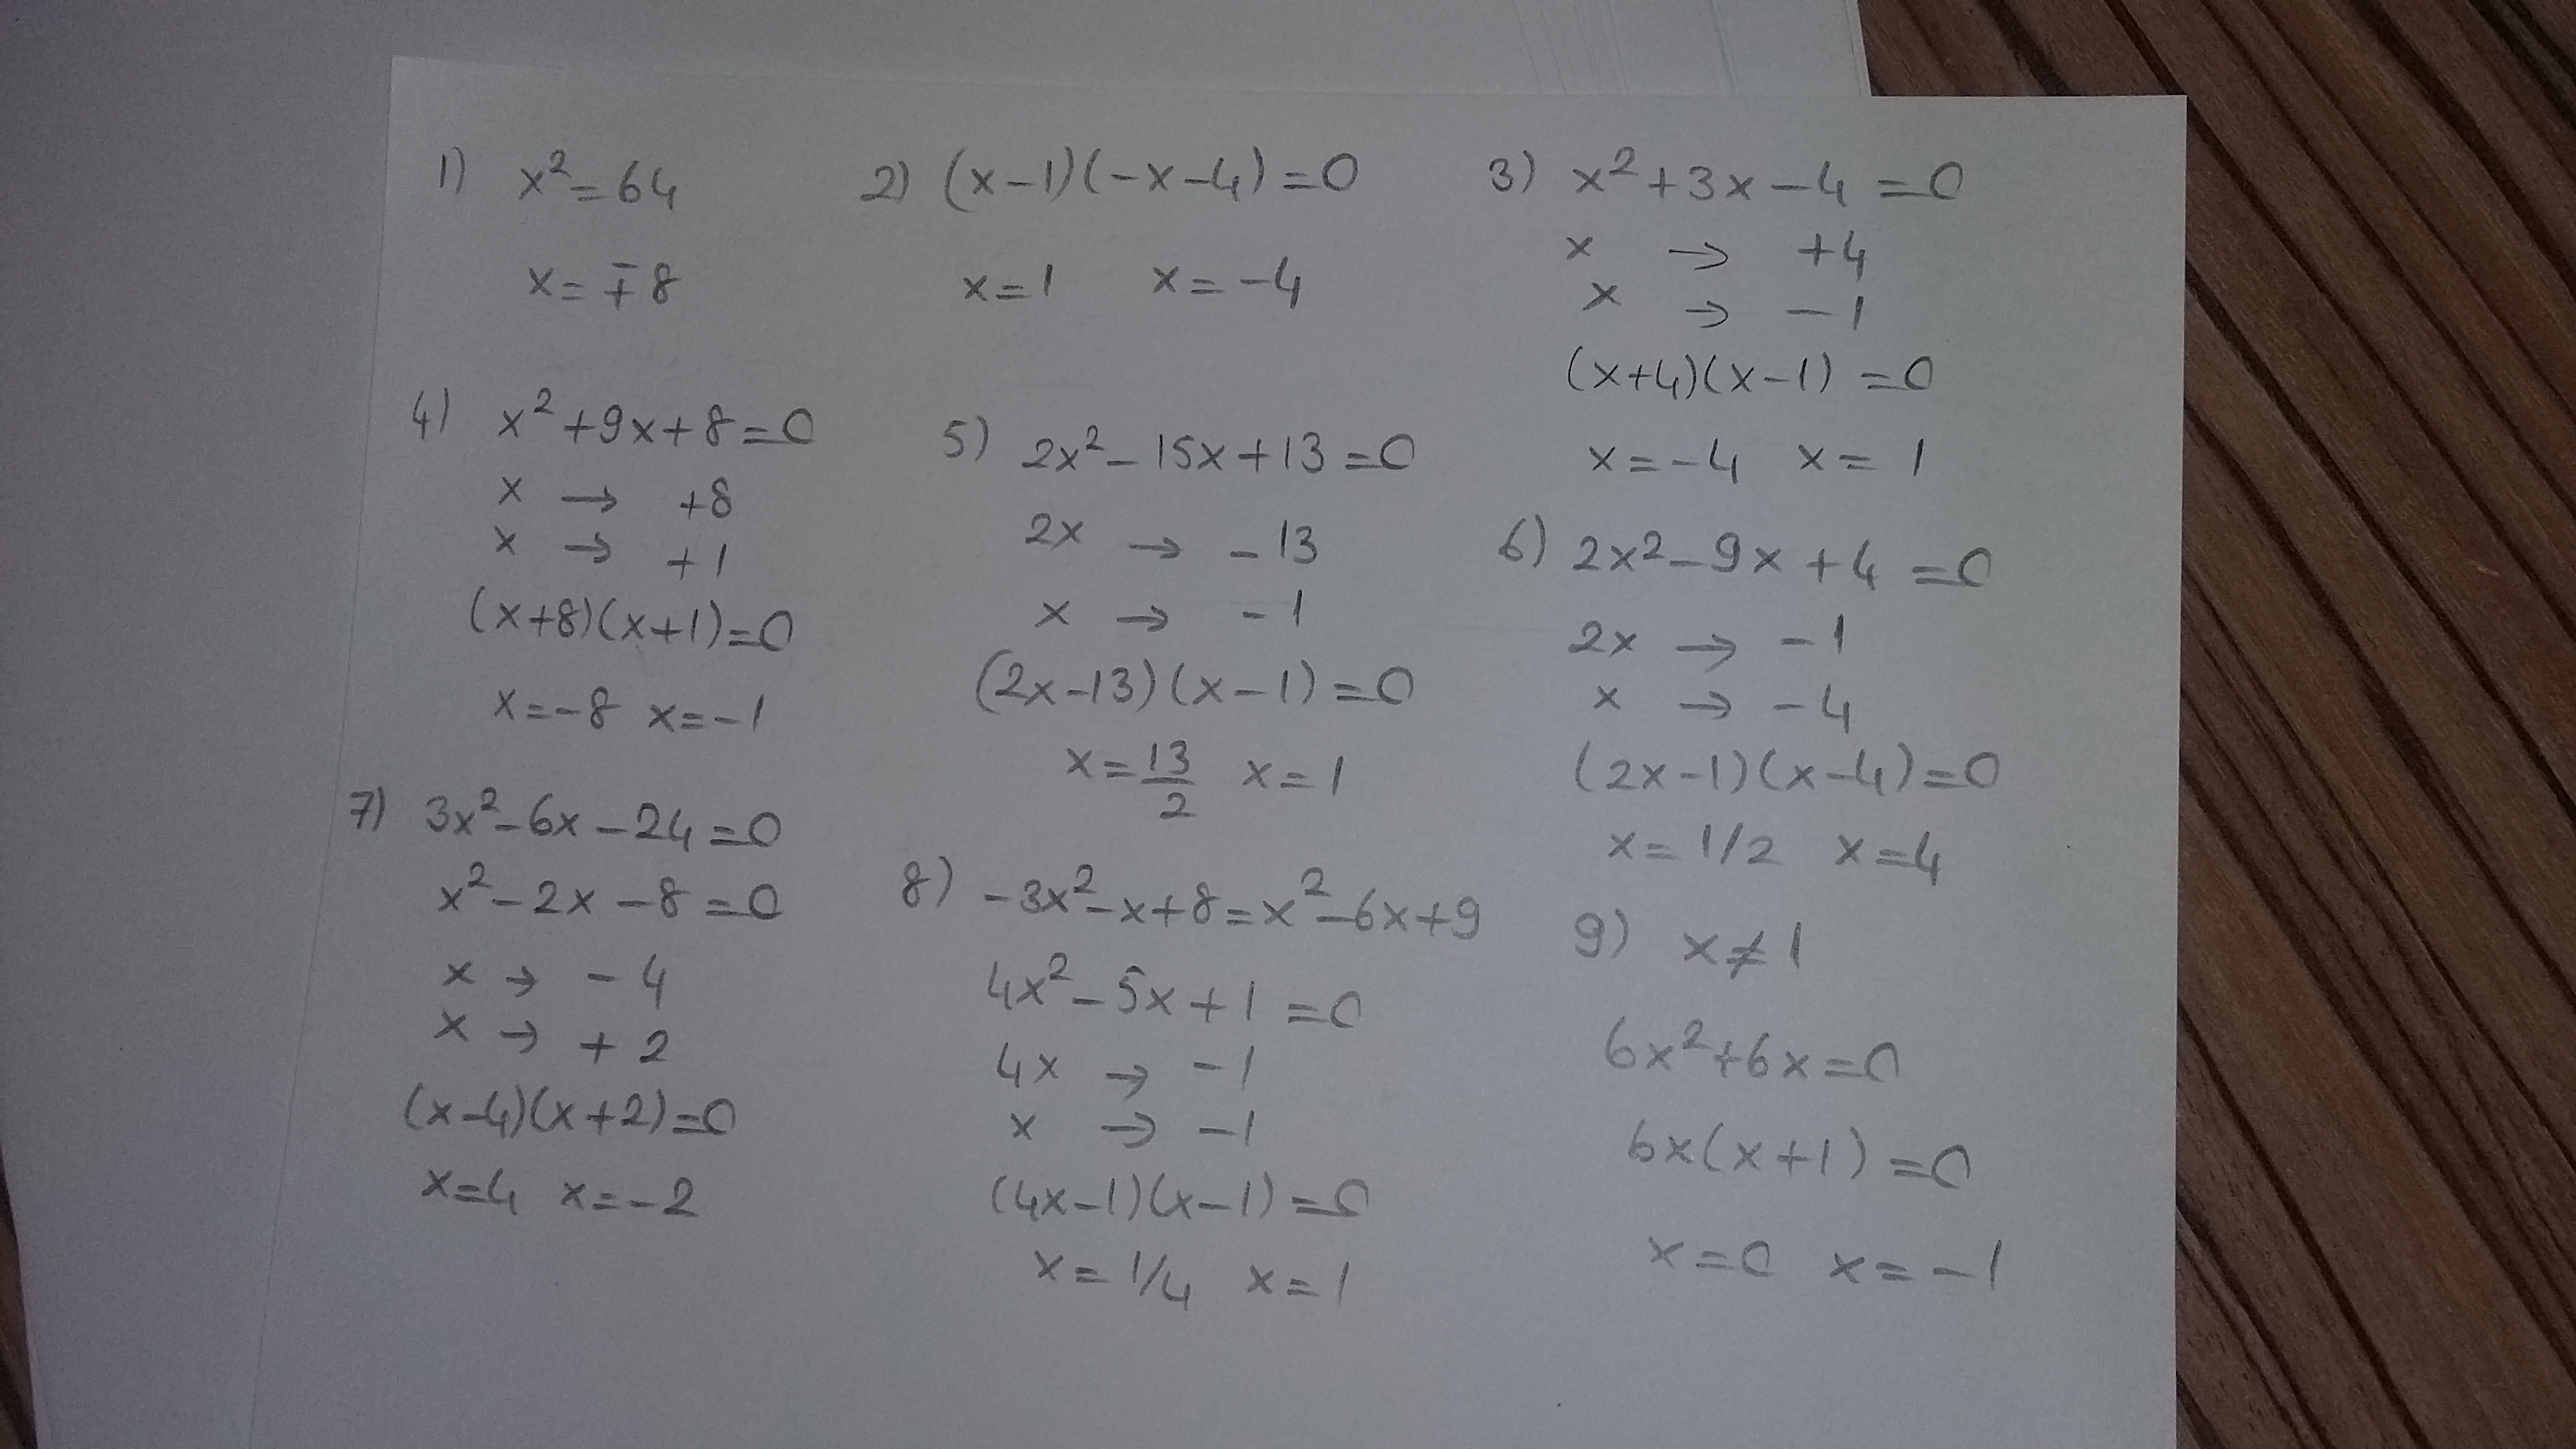 1) x² = 64
x = ∓8
2) (x-1)(-x-4) = 0
x = 1 x = -4
3) x² + 3x - 4 = 0
x → +4
x → -1
(x+4)(x-1) = 0
x = -4 x = 1
4) x² + 9x + 8 = 0
x → +8
x → +1
(x+8)(x+1) = 0
x = -8 x = -1
5) 2x² - 15x + 13 = 0
2x → -13
x → -1
(2x-13)(x-1) = 0
x = 13/2 x = 1
6) 2x² - 9x + 4 = 0
2x → -1
x → -4
(2x-1)(x-4) = 0
x = 1/2 x = 4
7) 3x² - 6x - 24 = 0
x² - 2x - 8 = 0
x → -4
x → +2
(x-4)(x+2) = 0
x = 4 x = -2
8) -3x² - x + 8 = x² - 6x + 9
4x² - 5x + 1 = 0
4x → -1
x → -1
(4x-1)(x-1) = 0
x = 1/4 x = 1
9) x ≠ 1
6x² + 6x = 0
6x(x+1) = 0
x = 0 x = -1